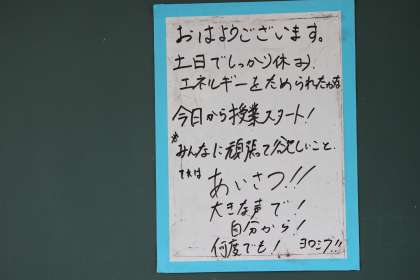 おはようございます。
土日でしっかり休み、
エネルギーをためられたかな
今日から授業スタート!
みんなに頑張って欲しいこと、
それは
あいさつ!!
大きな声で!
自分から!
何度でも! ヨロシク!!